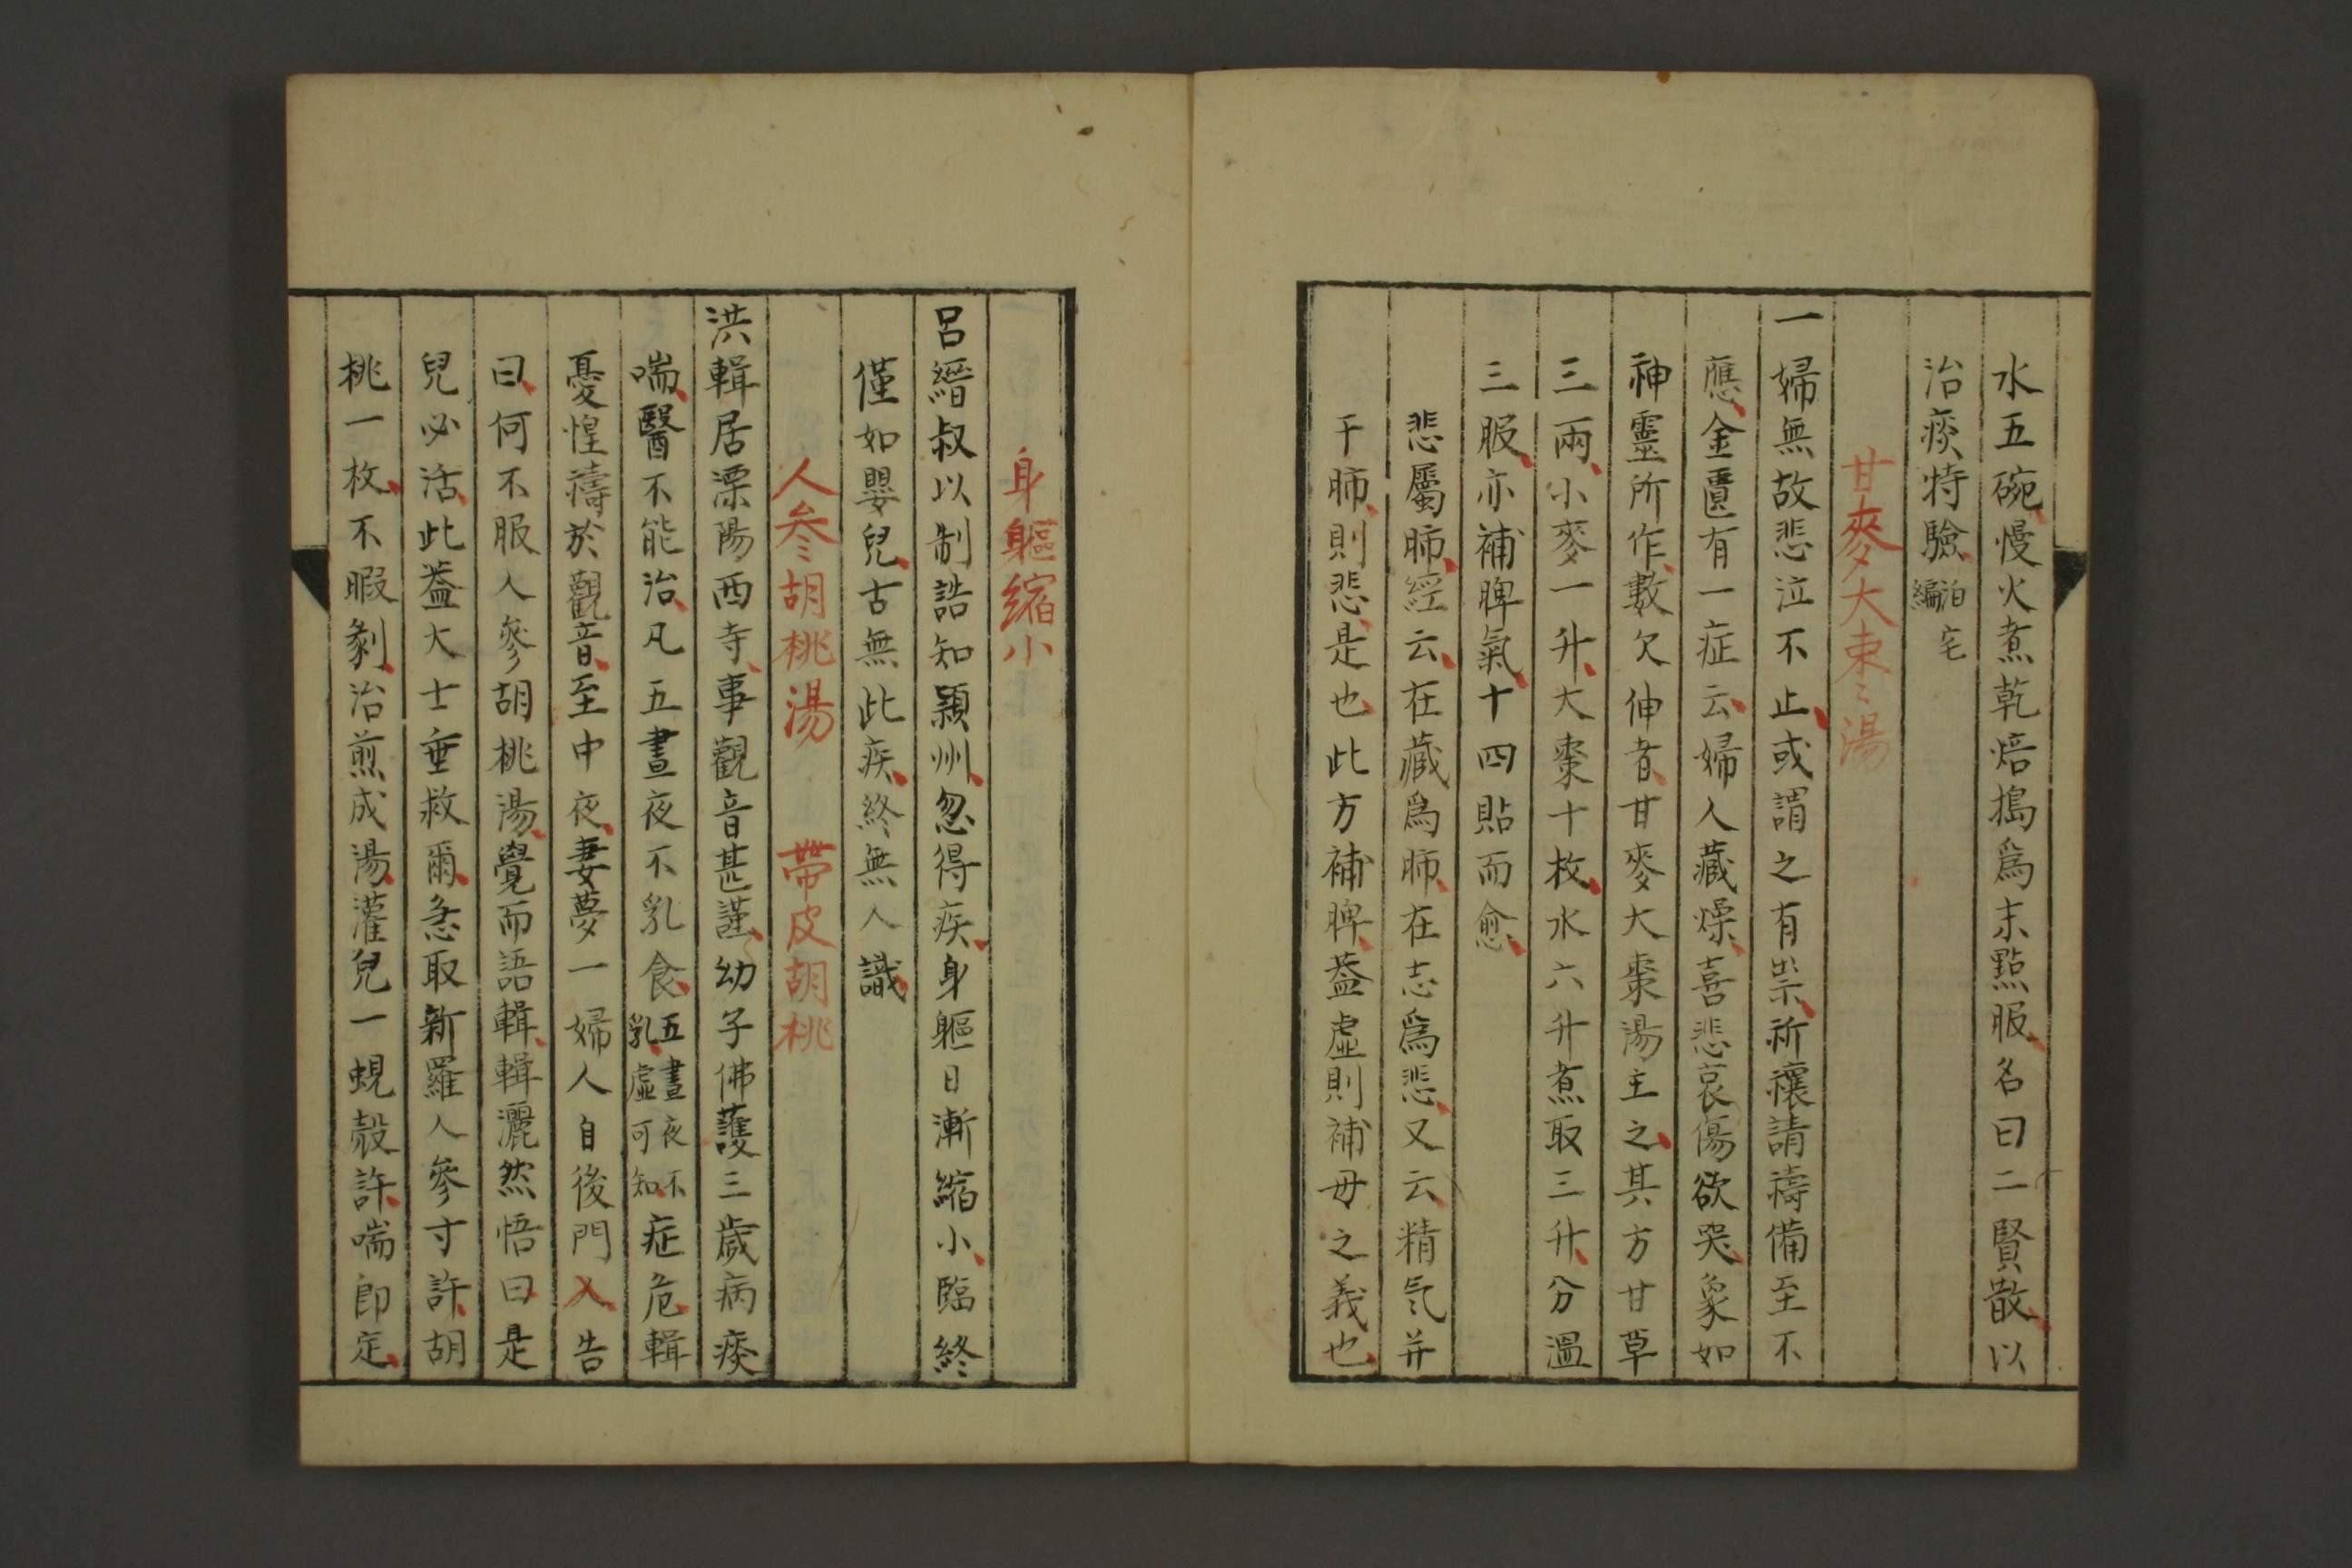 水五碗慢火煮乾焙搗爲末點服名曰二賢散以
治痰特驗泊宅編
甘麥大束〻湯
一婦無故悲泣不止或謂之有祟祈禳請禱備至不
應金匱有一症云婦人藏燥喜悲哀傷欲哭象如
神靈所作數欠伸者甘麥大棗湯主之其方甘草
三兩小麥一升大棗十枚水六升煮取三升分溫
三服亦補脾氣十四貼而愈
悲屬肺經云在藏爲肺在志爲悲又云精気并
于肺則悲是也此方補脾蓋虛則補母之義也
身軀縮小
呂縉叔以制誥知潁州忽得疾身軀日漸縮小臨終
僅如嬰兒古無此疾終無人識
人參胡桃湯 帶皮胡桃
洪輯居溧陽西寺事觀音甚謹幼子佛護三歲病痰
喘醫不能治凡五晝夜不乳食五晝夜不乳虛可知症危輯
憂惶禱於觀音至中夜妻夢一婦人自後門入告
曰何不服人參胡桃湯覺而語輯輯灑然悟曰是
兒必活此蓋大士垂救爾急取新羅人參寸許胡
桃一枚不暇剝治煎成湯灌兒一蜆殼許喘即定